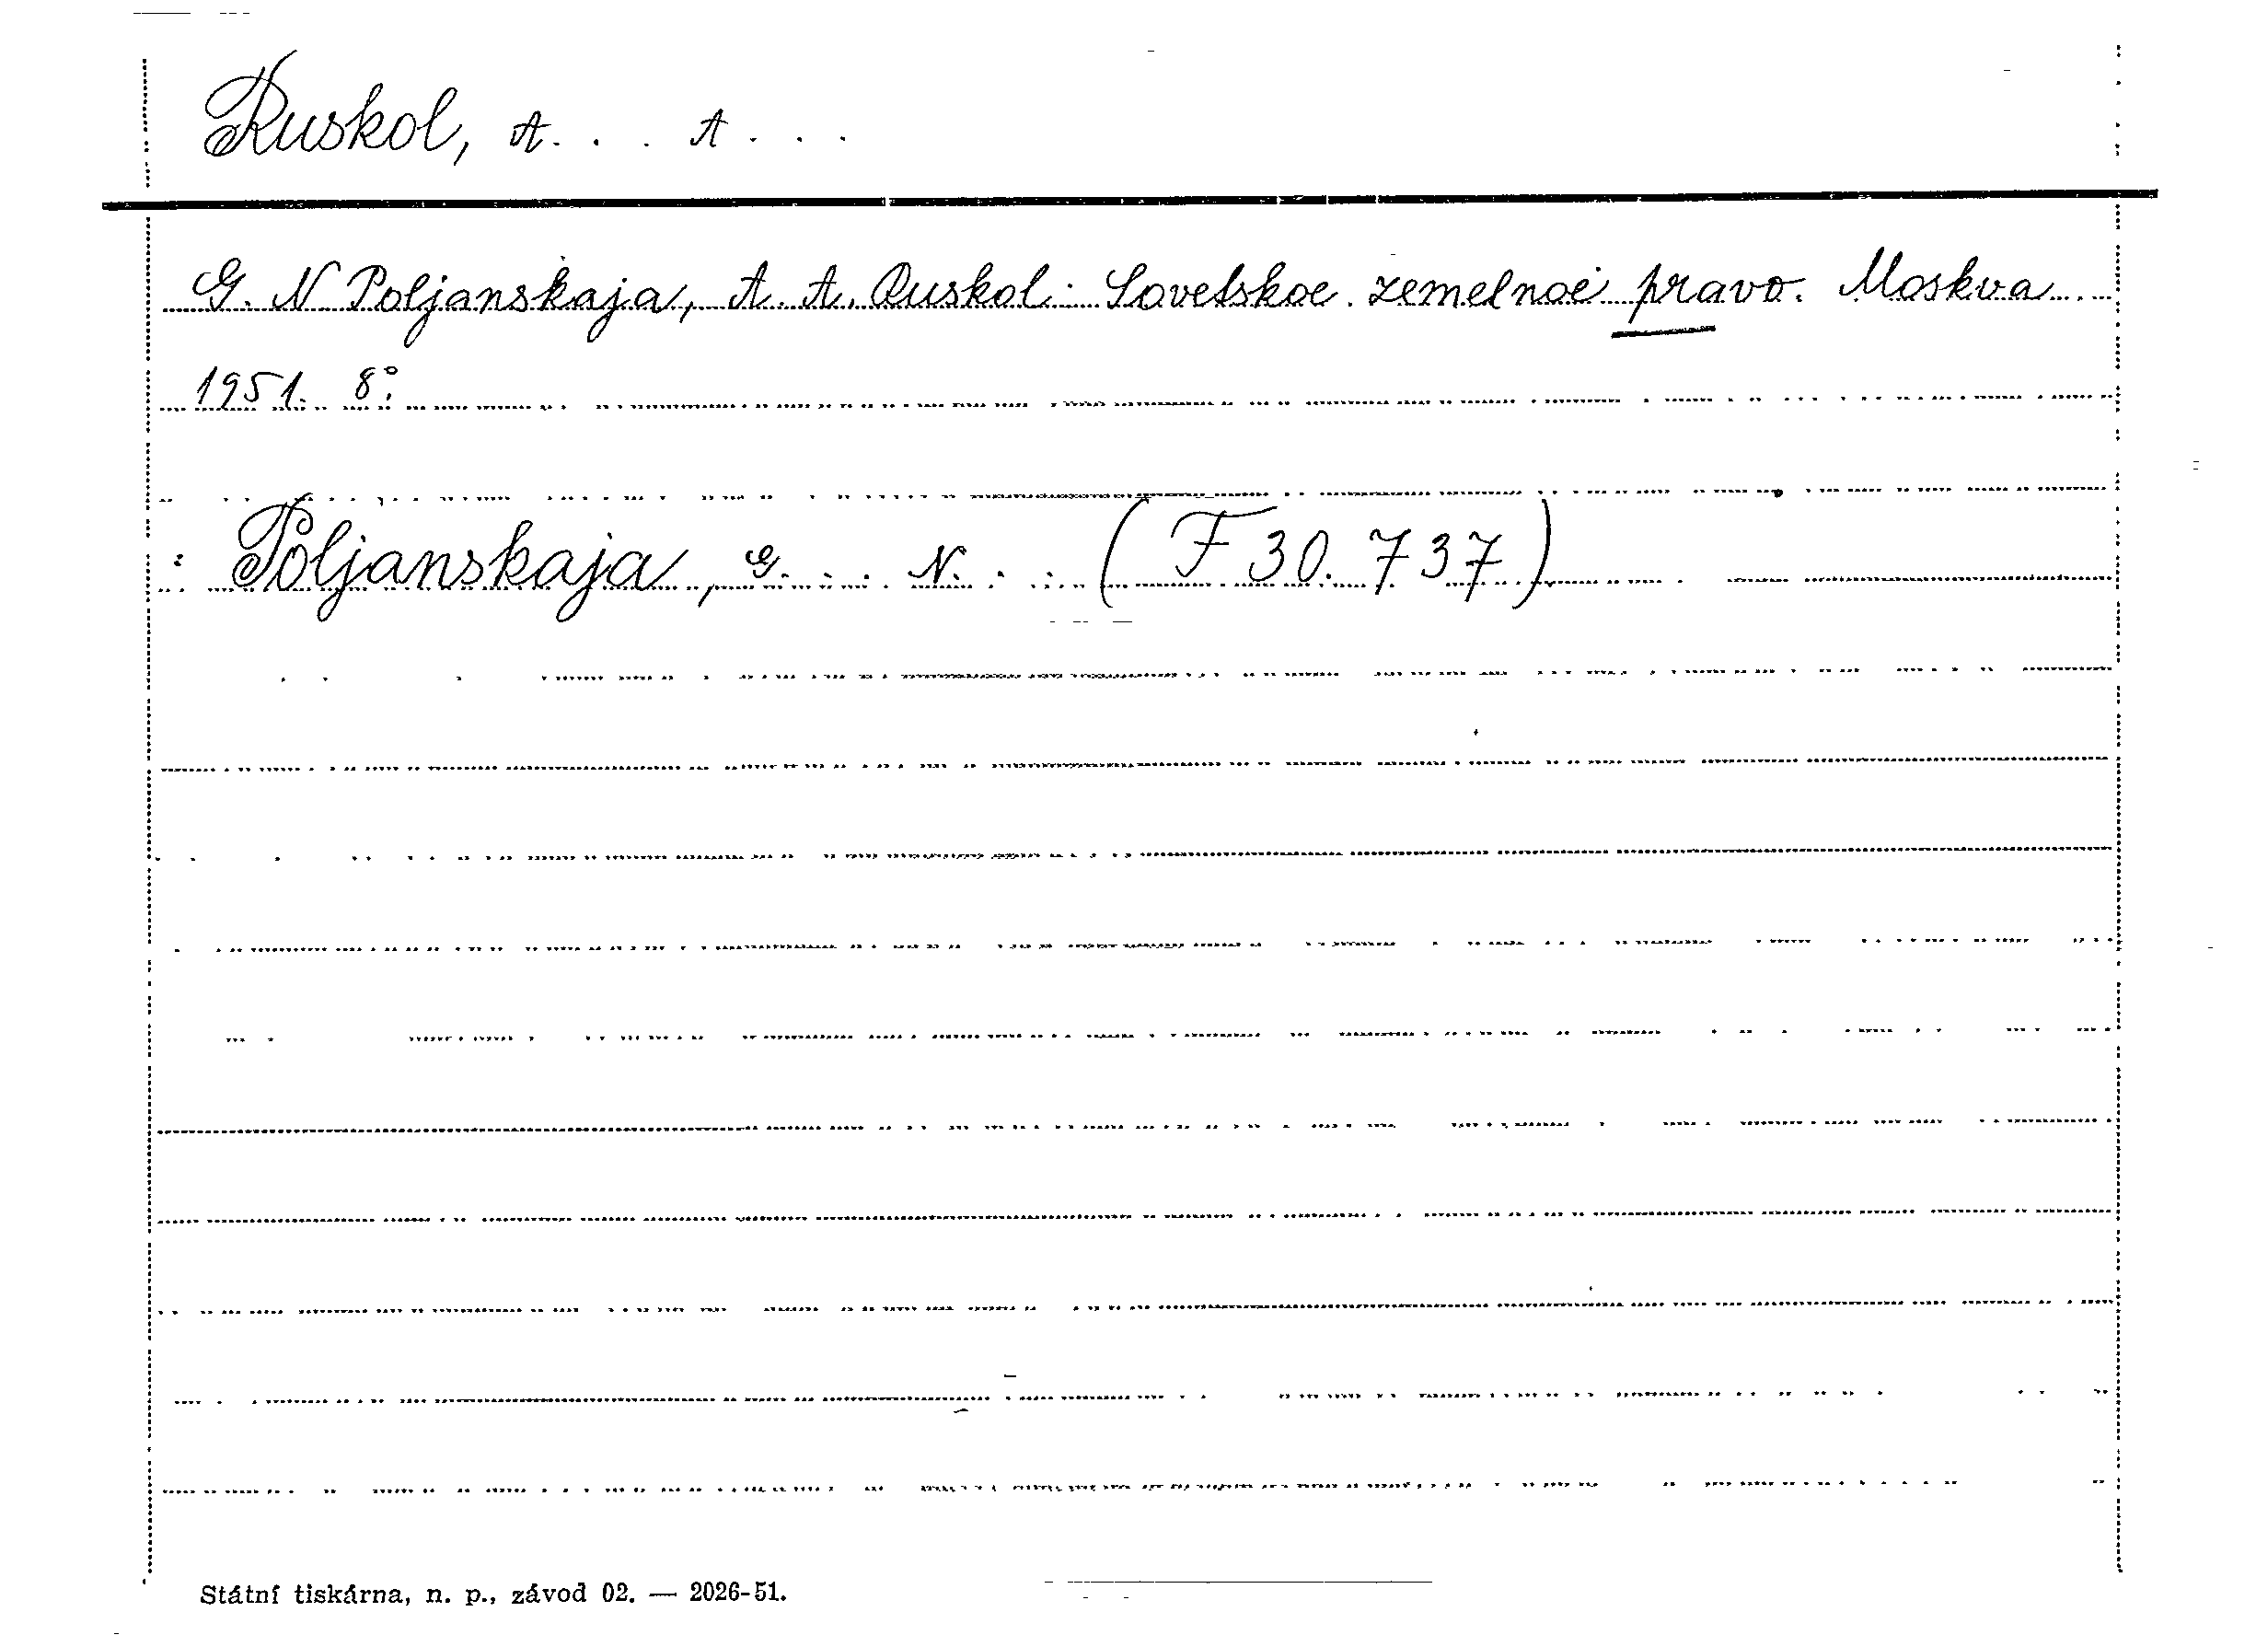 Ruskol, A. . . A . . .
G. N Poljanskaja, A. A. Ruskol: Sovetskoe zemelnoe pravo. Moskva
1951. 8°.
: Poljanskaja, G. . . N. . . (F 30. 737)
Státní tiskárna, n. p., závod 02. — 2026-51.